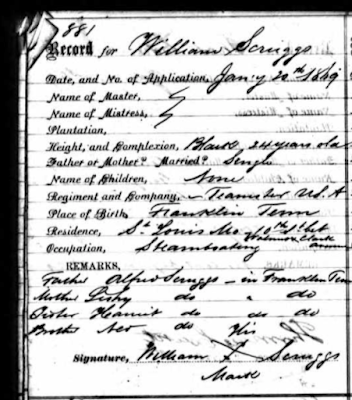 881
Record for William Scruggs
Date, and No. of Application, Jan'y 20th 1869
Name of Master,
Name of Mistress,
Plantation,
Height, and Complexion, Black 24 years old
Father or Mother? Married? Single
Name of Children, None
Regiment and Company, Teamster U.S.A
Place of Birth, Franklin Tenn
Residence, St Louis Mo 10th St bet
Occupation, Steamboating
REMARKS.
Father Alfred Scruggs – in Franklin Ten
Mother do " do
Sister do do do
Brother do His
Signature, William F. Scruggs
Mark